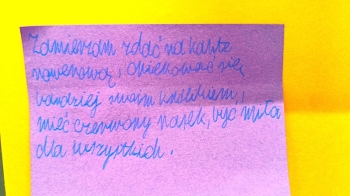 Zamierzam zdać na kartę
rowerową, opiekować się
bardziej swoim królikiem,
mieć czerwony pasek, być miła
dla wszystkich.